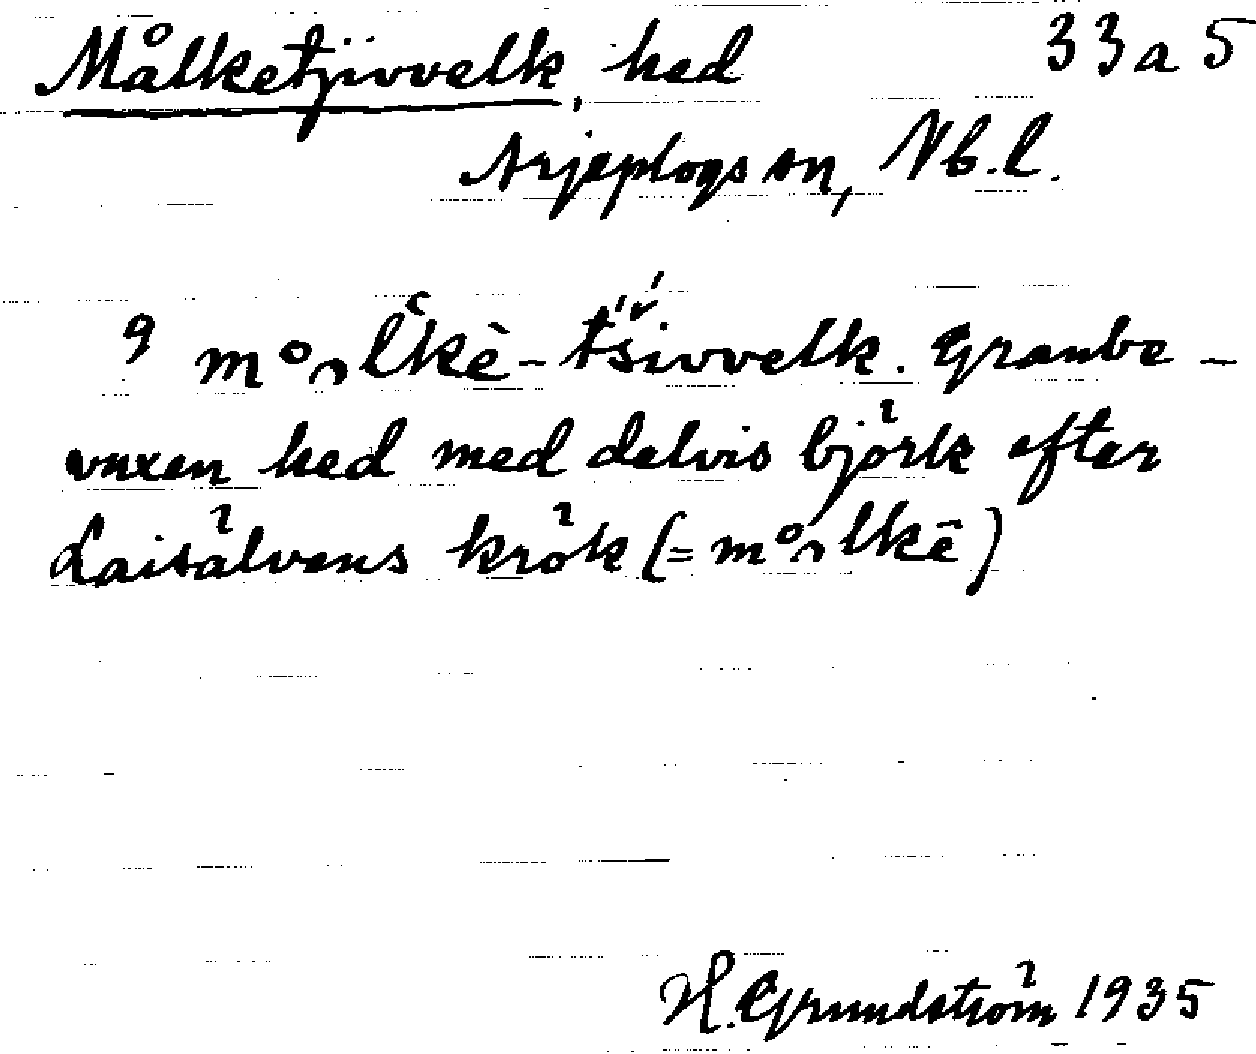 Målketjivvelk, hed 33a5
Arjeplogs sn, Nb.l.
9 må̭lʽkè-tš́ivvelk. Granbe-
vuxen hed med delvis björk efter
Laisälvens krök (= må̭lkē)
H. Grundström 1935